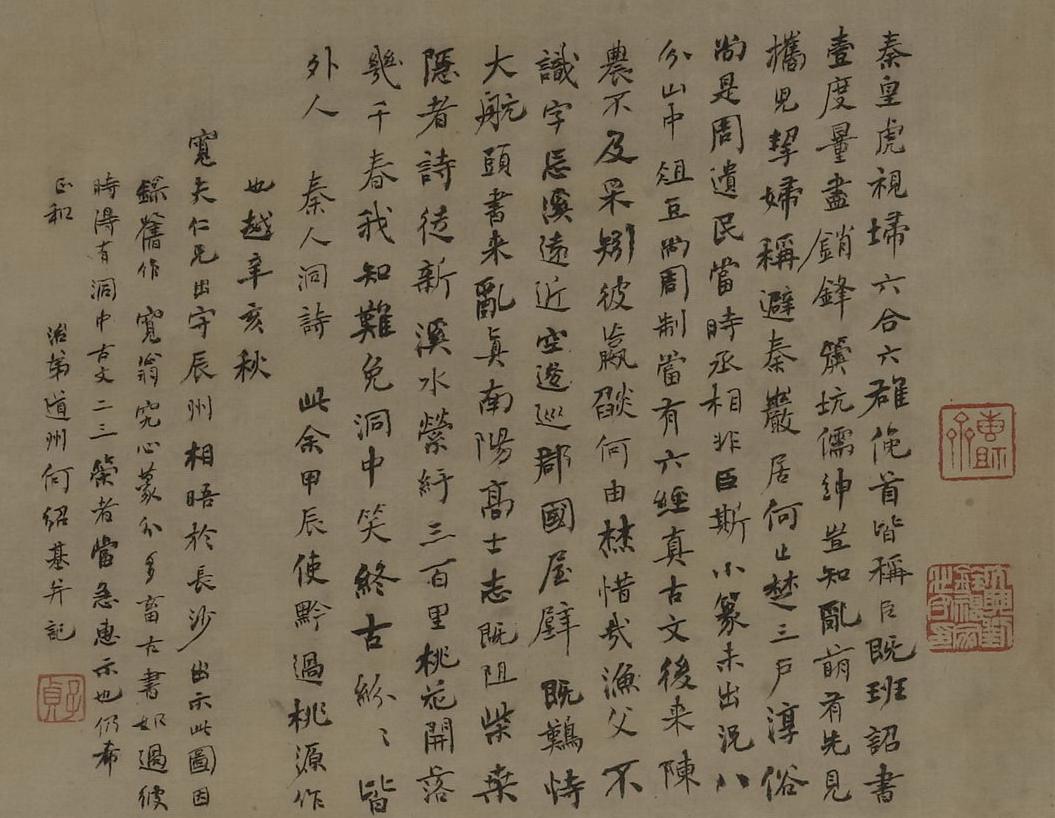 秦皇虎視埽六合六雄俛首皆稱臣既班詔書
壹度量盡銷鋒簴坑儒紳豈知亂萌有先見
攜兒挈婦稱避秦巖居何止楚三戶淳俗
尚是周遺民當時丞相非臣斯小篆未出況八
分山中俎豆尚周制當有六經真古文後来陳
農不及采矧彼嬴燄何由焚惜哉漁父不
識字忘溪遠近空迷巡郡國屋壁既難恃
大航頭書来亂真南陽高士志既阻柴桑
隱者詩徒新溪水縈紆三百里桃花開落
幾千春我知難免洞中笑終古紛〻皆
外人 秦人洞詩 此余甲辰使黔過桃源作
也越辛亥秋
寬夫仁兄出守辰州相晤於長沙出示此圖因
錄舊作 寬翁究心篆分多畜古書如過彼
時得有洞中古文二三策者當急惠示也仍希
正和 治弟道州何紹基并記
子貞